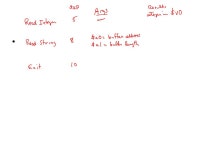 $v0 Args Results
Read Integer 5 integer in $v0
Read String 8 $a0 = buffer address
$a1 = buffer length
Exit 10